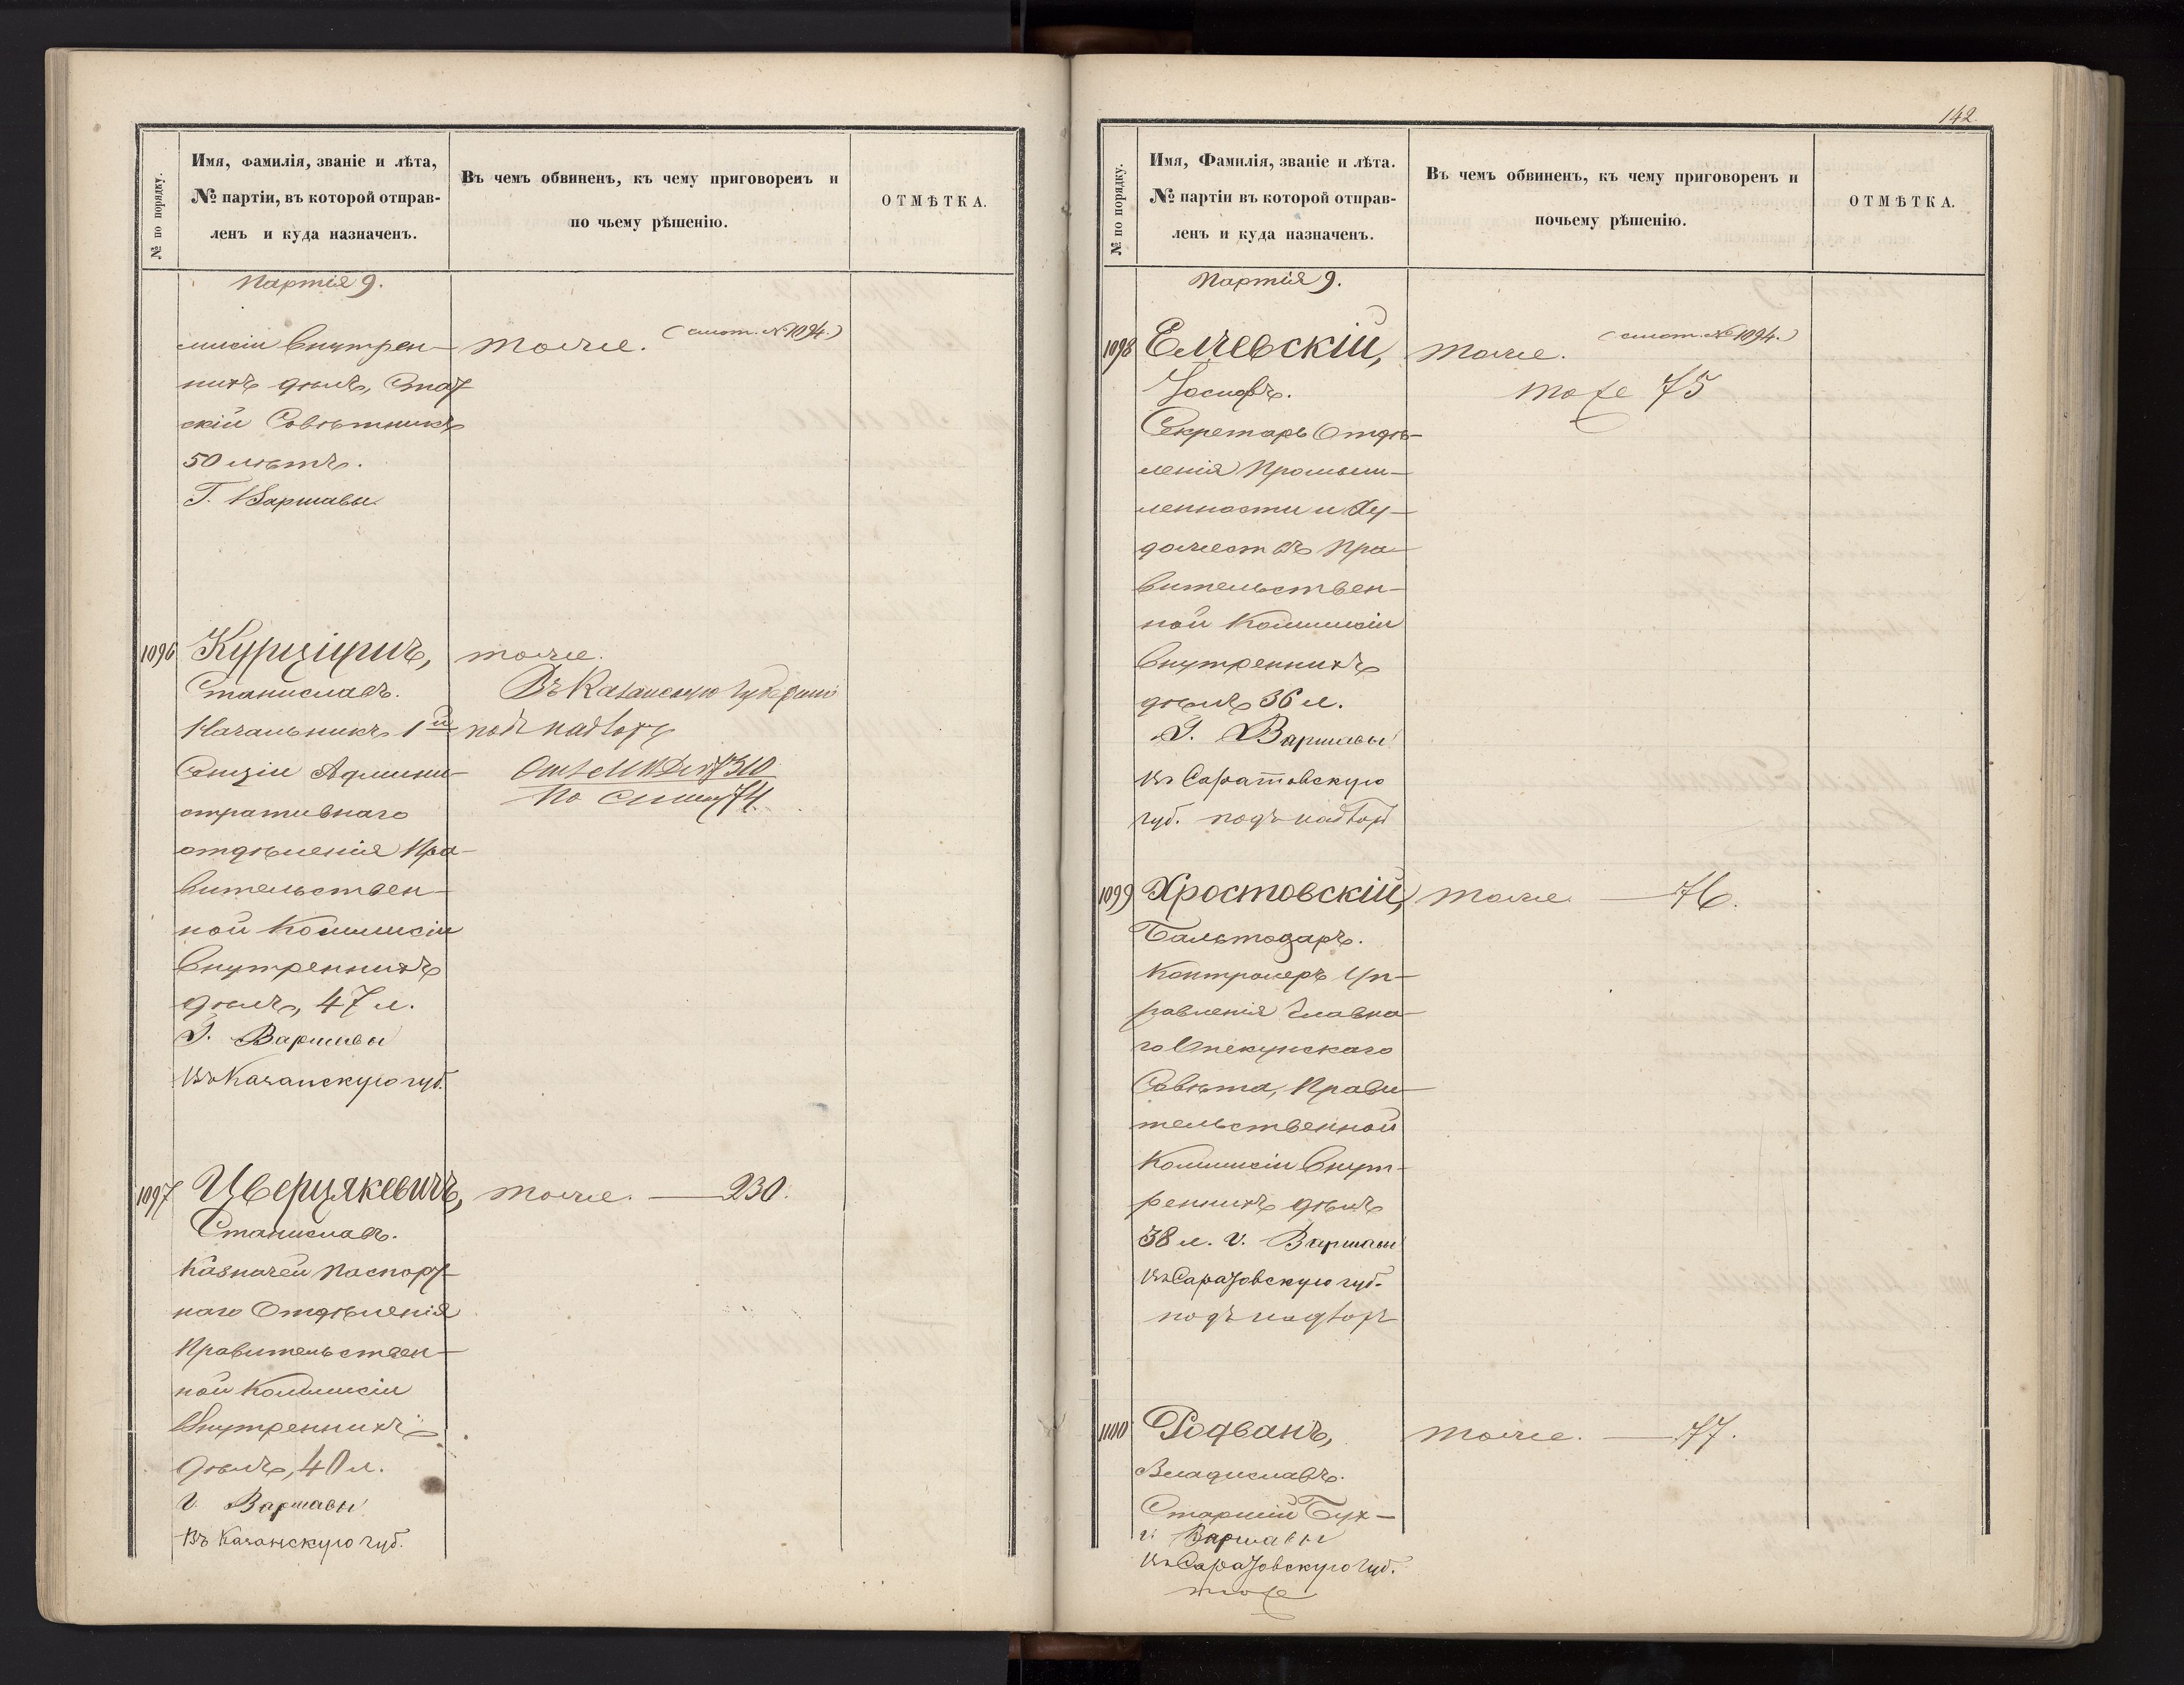 № по порядку.
Имя, фамилія, званіе и лѣта,
№ партіи, въ которой отправ-
ленъ и куда назначенъ.
Въ чемъ обвиненъ, къ чему приговоренъ и
по чьему рѣшенію.
ОТМѢТКА.
Партія 9.
мисіи Внутрен-
нихъ дѣлъ, Стат
скій Совѣтникъ
50 лѣтъ.
Г. Варшавы
тоже. (смот. №1094.)
1096
Станиславъ.
Начальникъ 1й
Секціи Админи-
стративнаго
отдѣленія Пра-
вительствен-
ной Коммисіи
Внутреннихъ
дѣлъ, 47 л.
Г. Варшавы
Въ Казанскую губ.
тоже.
Въ Казанскую губернію
подъ надзоръ
По списку 74
1097 Цверцякевичъ, тоже. — 230.
Станиславъ.
Казначей Паспорт
наго Отдѣленія
Правительствен-
ной Коммисіи
Внутреннихъ
дѣлъ, 40 л.
г. Варшавы
Въ Казанскую губ.
142.
№ по порядку.
Имя, Фамилія, званіе и лѣта.
№ партіи въ которой отправ-
ленъ и куда назначенъ.
Въ чемъ обвиненъ, къ чему приговоренъ и
почьему рѣшенію.
ОТМѢТКА.
Партія 9.
1098 Елчевскій, тоже. (смот. №1094.)
Іосифъ. тоже 75
Секретарь Отдѣ-
ленія Промыш-
ленности и Ху-
дожествъ Пра-
вительствен-
ной Коммисіи
Внутреннихъ
дѣлъ 36 л.
Г. Варшавы
Въ Саратовскую
губ. подъ надзоръ
1099 Хростовскій, тоже. — 76.
Бальтазаръ.
Контролеръ Уп-
равленія Главна-
го Опекунскаго
Совѣта, Прави-
тельственной
Коммисіи Внут-
реннихъ дѣлъ
38 л. г. Варшавы
Въ Саратовскую губ.
подъ надзоръ
1100 Родванъ, тоже. — 77.
Владиславъ.
Старшій Бух-
г. Варшавы
Въ Саратовскую губ.
тоже